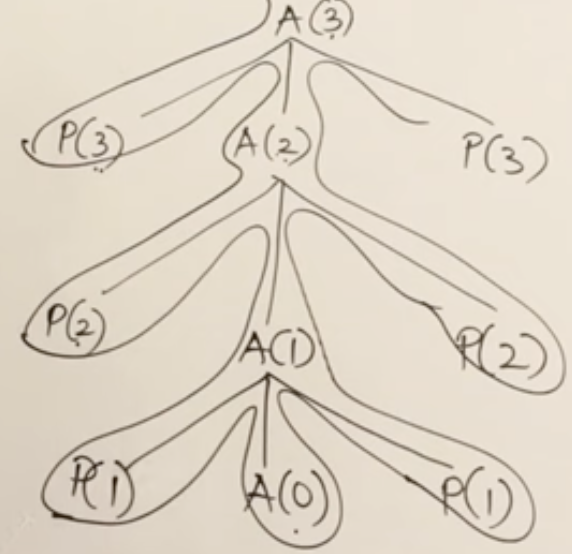 A(3)
P(3) A(2) P(3)
P(2) A(1) P(2)
P(1) A(0) P(1)